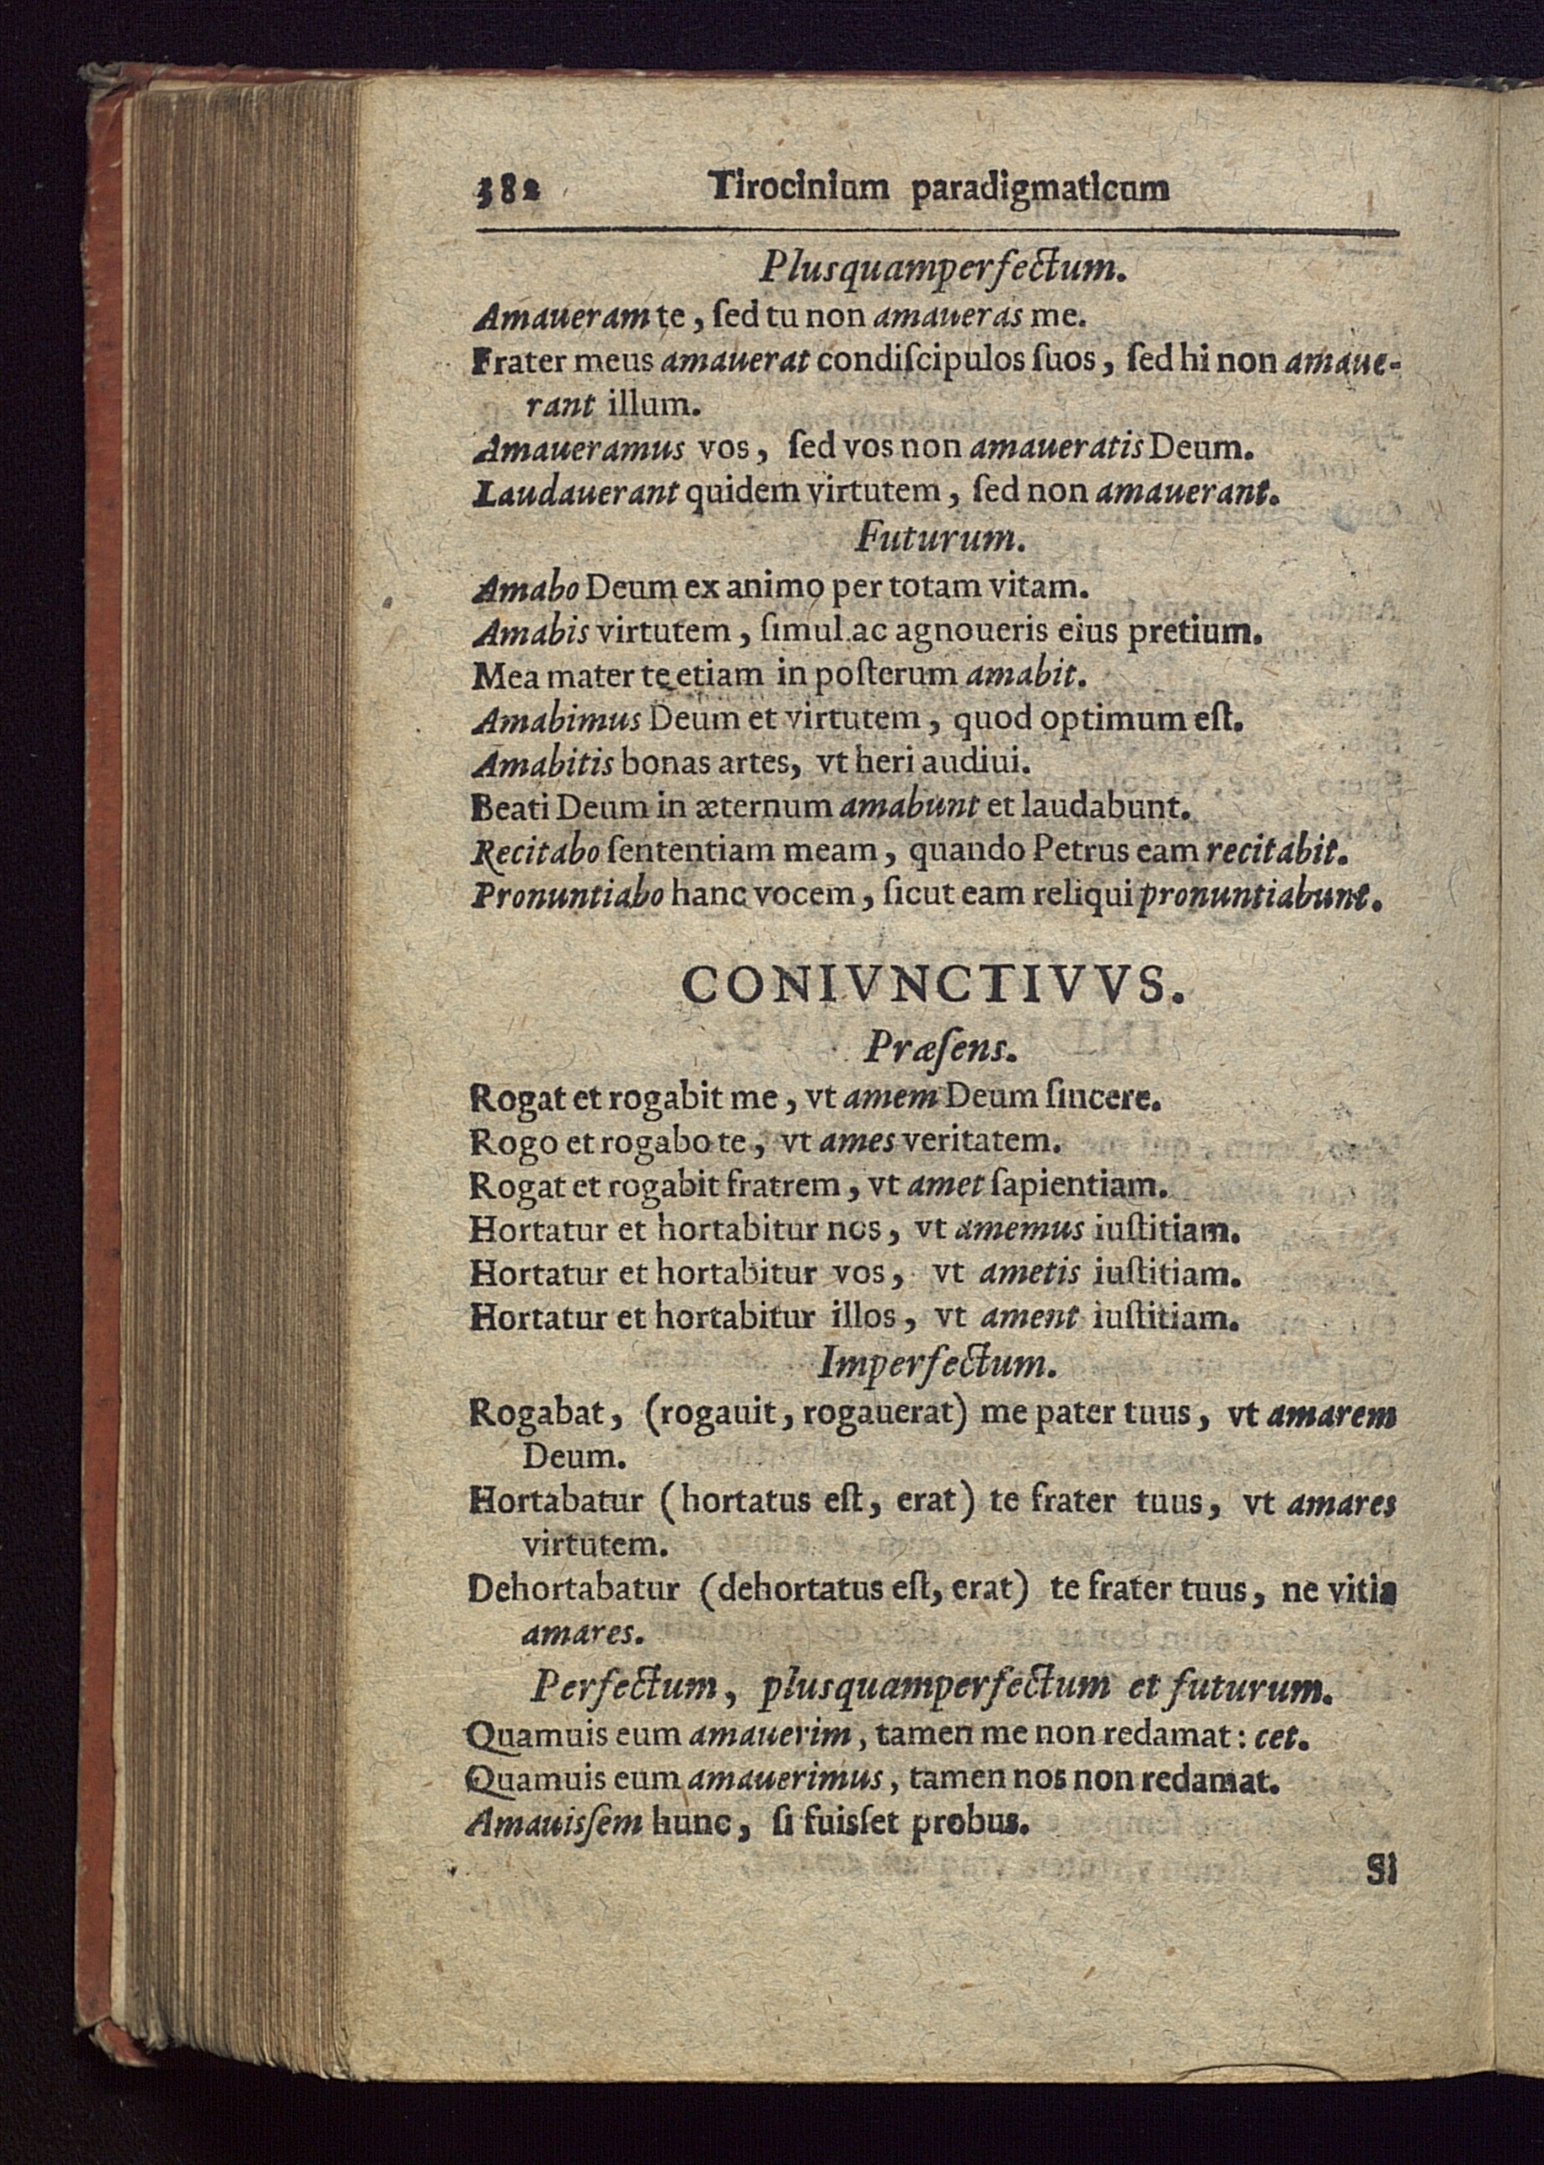 382 Tirocinium paradigmaticum
Plusquamperfectum.
Amaueram te, ſed tu non amaueras me.
Frater meus amauerat condiſcipulos ſuos, ſed hi non amaue-
rant illum.
Amaueramus vos, ſed vos non amaueratis Deum.
Laudauerant quidem virtutem, ſed non amauerant.
Futurum.
Amabo Deum ex animo per totam vitam.
Amabis virtutem, ſimul ac agnoueris eius pretium.
Mea mater te etiam in poſterum amabit.
Amabimus Deum et virtutem, quod optimum eſt.
Amabitis bonas artes, vt heri audiui.
Beati Deum in æternum amabunt et laudabunt.
Recitabo ſententiam meam, quando Petrus eam recitabit.
Pronuntiabo hanc vocem, ſicut eam reliqui pronuntiabunt.
CONIVNCTIVVS.
Præſens.
Rogat et rogabit me, vt amem Deum ſincere.
Rogo et rogabo te, vt ames veritatem.
Rogat et rogabit fratrem, vt amet ſapientiam.
Hortatur et hortabitur nos, vt amemus iuſtitiam.
Hortatur et hortabitur vos, vt ametis iuſtitiam.
Hortatur et hortabitur illos, vt ament iuſtitiam.
Imperfectum.
Rogabat, (rogauit, rogauerat) me pater tuus, vt amarem
Deum.
Hortabatur (hortatus eſt, erat) te frater tuus, vt amares
virtutem.
Dehortabatur (dehortatus eſt, erat) te frater tuus, ne vitia
amares.
Perfectum, plusquamperfectum et futurum.
Quamuis eum amauerim, tamen me non redamat: cet.
Quamuis eum amauerimus, tamen nos non redamat.
Amauisſem hunc, ſi fuisſet probus.
Si